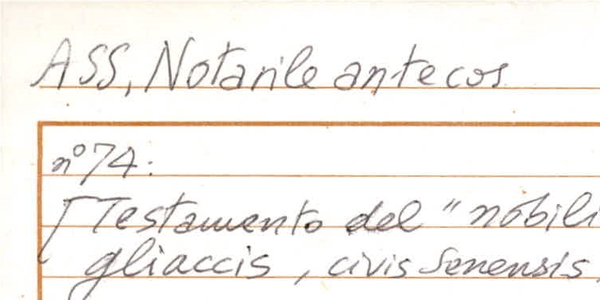 ASS, Notarile antecos
n° 74:
[Testamento del "nobili
gliaccis, civis Senensis,